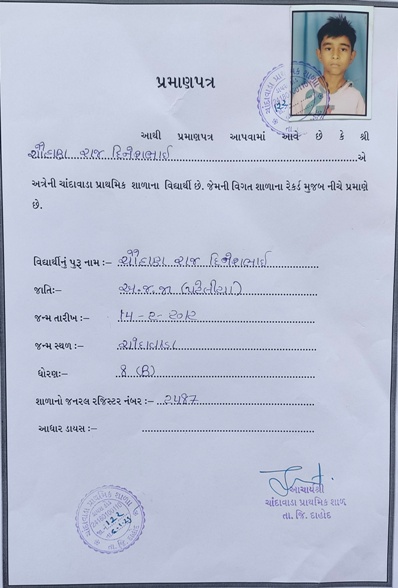 પ્રમાણપત્ર
આથી પ્રમાણપત્ર આપવામાં આવે છે કે શ્રી
ચૌહાણ રાજ દિનેશભાઈ એ
અત્રેની ચાંદાવાડા પ્રાથમિક શાળાના વિદ્યાર્થી છે. જેમની વિગત શાળાના રેકર્ડ મુજબ નીચે પ્રમાણે
છે.
વિદ્યાર્થીનું પુરૂ નામ :– ચૌહાણ રાજ દિનેશભાઈ
જાતિઃ– અ.જ.જા (પટેલીયા)
જન્મ તારીખ :– ૧૫ - ૨ - ૨૦૧૨
જન્મ સ્થળ :– ચાંદાવાડા
ધોરણઃ– 8 (B)
શાળાનો જનરલ રજિસ્ટર નંબર :– ૨૫87
આધાર ડાયસ :–
આચાર્યશ્રી
ચાંદાવાડા પ્રાથમિક શાળ
તા. જિ. દાહોદ